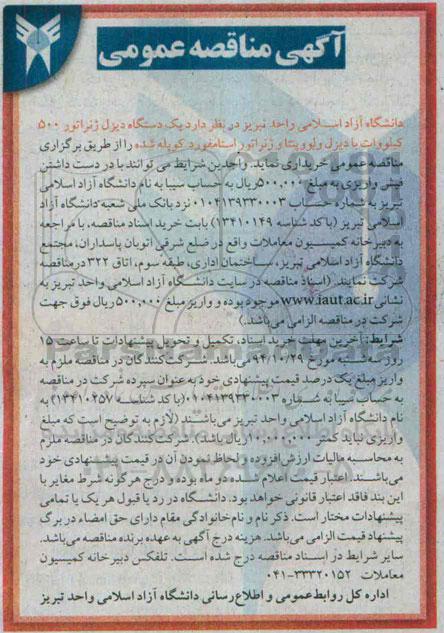 آگهی مناقصه عمومی
دانشگاه آزاد اسلامی واحد تبریز در نظر دارد یک دستگاه دیزل ژنراتور ۵۰۰
کیلووات با دیزل ولوو پنتا و ژنراتور استامفورد کوپله شده را از طریق برگزاری
مناقصه عمومی خریداری نماید. واجدین شرایط می توانند با در دست داشتن
فیش واریزی به مبلغ ۵۰۰,۰۰۰ ریال به حساب سیبا به نام دانشگاه آزاد اسلامی
تبریز به شماره حساب ۰۱۰۴۱۳۹۳۳۰۰۰۳ نزد بانک ملی شعبه دانشگاه آزاد
اسلامی تبریز (با کد شناسه ۱۳۴۱۰۱۴۹) بابت خرید اسناد مناقصه، با مراجعه
به دبیرخانه کمیسیون معاملات واقع در ضلع شرقی اتوبان پاسداران، مجتمع
دانشگاه آزاد اسلامی تبریز، ساختمان اداری، طبقه سوم، اتاق ۳۲۲ در مناقصه
شرکت نمایند. (اسناد مناقصه در سایت دانشگاه آزاد اسلامی واحد تبریز به
نشانی www.iaut.ac.ir موجود بوده و واریز مبلغ ۵۰۰,۰۰۰ ریال فوق جهت
شرکت در مناقصه الزامی می‌باشد.)
شرایط: آخرین مهلت خرید اسناد، تکمیل و تحویل پیشنهادات تا ساعت ۱۵
روز سه شنبه مورخ ۹۴/۱۰/۲۹ می‌باشد. شرکت‌کنندگان در مناقصه ملزم به
واریز مبلغ یک درصد قیمت پیشنهادی خود به عنوان سپرده شرکت در مناقصه
به حساب سیبا به شماره ۰۱۰۴۱۳۹۳۳۰۰۰۳ (با کد شناسه ۱۳۴۱۰۲۵۷) به
نام دانشگاه آزاد اسلامی واحد تبریز می‌باشند (لازم به توضیح است که مبلغ
واریزی نباید کمتر ۱۰,۰۰۰,۰۰۰ ریال باشد). شرکت‌کنندگان در مناقصه ملزم
به محاسبه مالیات ارزش افزوده و لحاظ نمودن آن در قیمت پیشنهادی خود
می‌باشند. اعتبار قیمت اعلام شده دو ماه بوده و درج هرگونه شرط مغایر با
این بند فاقد اعتبار قانونی خواهد بود. دانشگاه در رد یا قبول هر یک یا تمامی
پیشنهادات مختار است. ذکر نام و نام خانوادگی مقام دارای حق امضاء در برگ
پیشنهاد قیمت الزامی می‌باشد. هزینه درج آگهی به عهده برنده مناقصه می‌باشد.
سایر شرایط در اسناد مناقصه درج شده است. تلفکس دبیرخانه کمیسیون
معاملات ۰۴۱-۳۳۳۲۰۱۵۲
اداره کل روابط عمومی و اطلاع رسانی دانشگاه آزاد اسلامی واحد تبریز